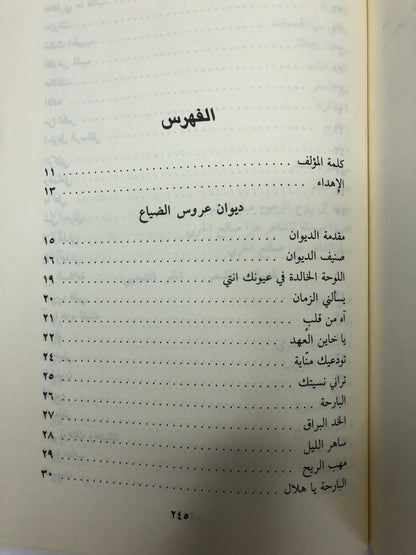 الفهرس
كلمة المؤلف ١١
الإهداء ١٣
ديوان عروس الضياع
مقدمة الديوان ١٥
صنيف الديوان ١٦
اللوحة الخالدة في عيونك انتي ١٩
يسألني الزمان ٢٠
آه من قلبٍ ٢١
يا خاين العهد ٢٢
تودعيك منّاية ٢٤
تراني نسيتك ٢٥
البارحة ٢٦
الخد البراق ٢٧
ساهر الليل ٢٨
مهب الريح ٢٩
البارحة يا هلال ٣٠
٢٤٥